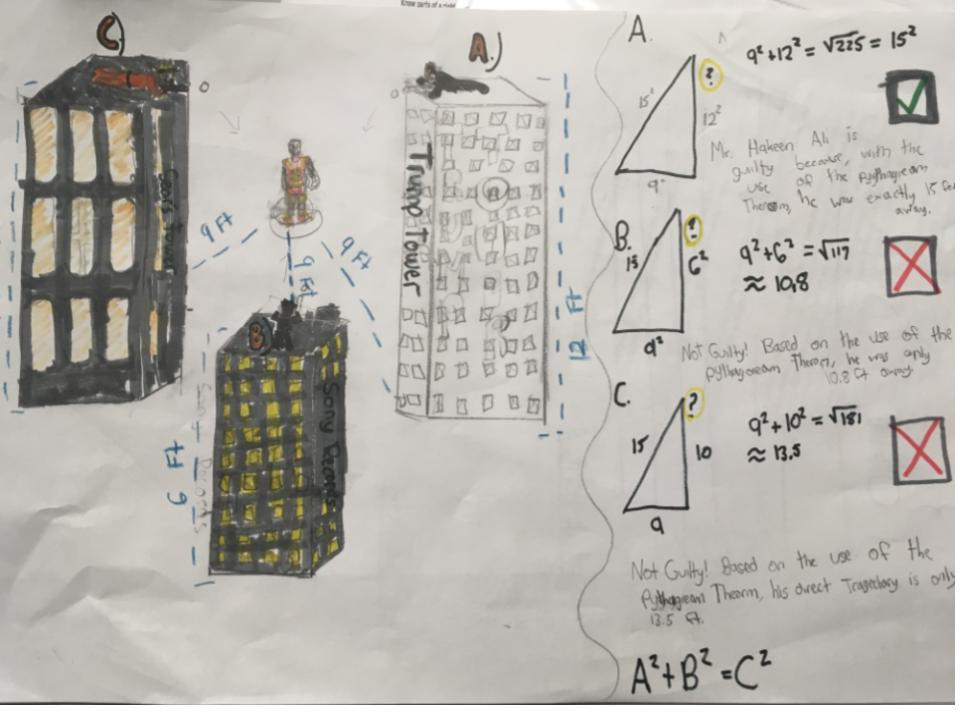 Know parts of a right
C)
A.)
Sears Tower
Trump Tower
9 Ft
9 Ft
9 Ft
B
Sony Records
6 Ft
12 Ft
A.
9² + 12² = √225 = 15²
15²
?
12²
9²
Mr. Hakeen Ali is
guilty because, with the
use of the Pythagrean
Therom, he was exactly 15 ft
away.
B.
9² + 6² = √117
≈ 10,8
15
?
6²
9²
Not Guilty! Based on the use of the
Pythagorean Therom, he was only
10.8 ft away
C.
9² + 10² = √181
≈ 13.5
15
?
10
9
Not Guilty! Based on the use of the
Pythagrean Theorm, his direct Tragectary is only
13.5 ft.
A² + B² = C²